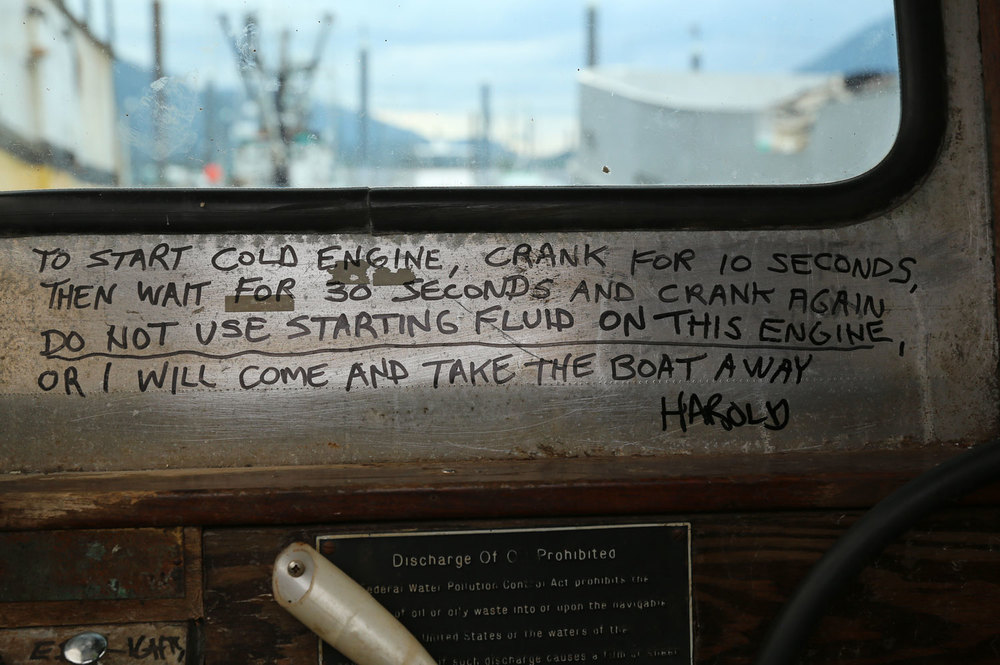 TO START COLD ENGINE, CRANK FOR 10 SECONDS,
THEN WAIT FOR 30 SECONDS AND CRANK AGAIN
DO NOT USE STARTING FLUID ON THIS ENGINE,
OR I WILL COME AND TAKE THE BOAT AWAY
HAROLD
Discharge Of O Prohibited
Federal Water Pollution Con ol Act prohibits the
of oil or oily waste into or upon the navigable
United States or the waters of the
of such discharge causes a film or sheen